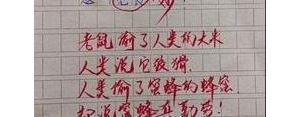 老鼠偷了人类的大米
人类说它狡猾.
人类偷了蜜蜂的蜂蜜.
却说蜜蜂真勤劳!